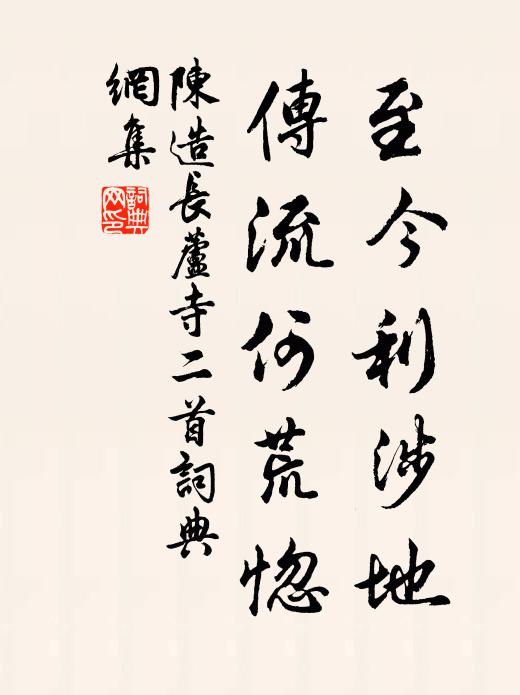 至今利涉地
傳流何荒惚
陳造長蘆寺二首詞典
網集
詞典
網印